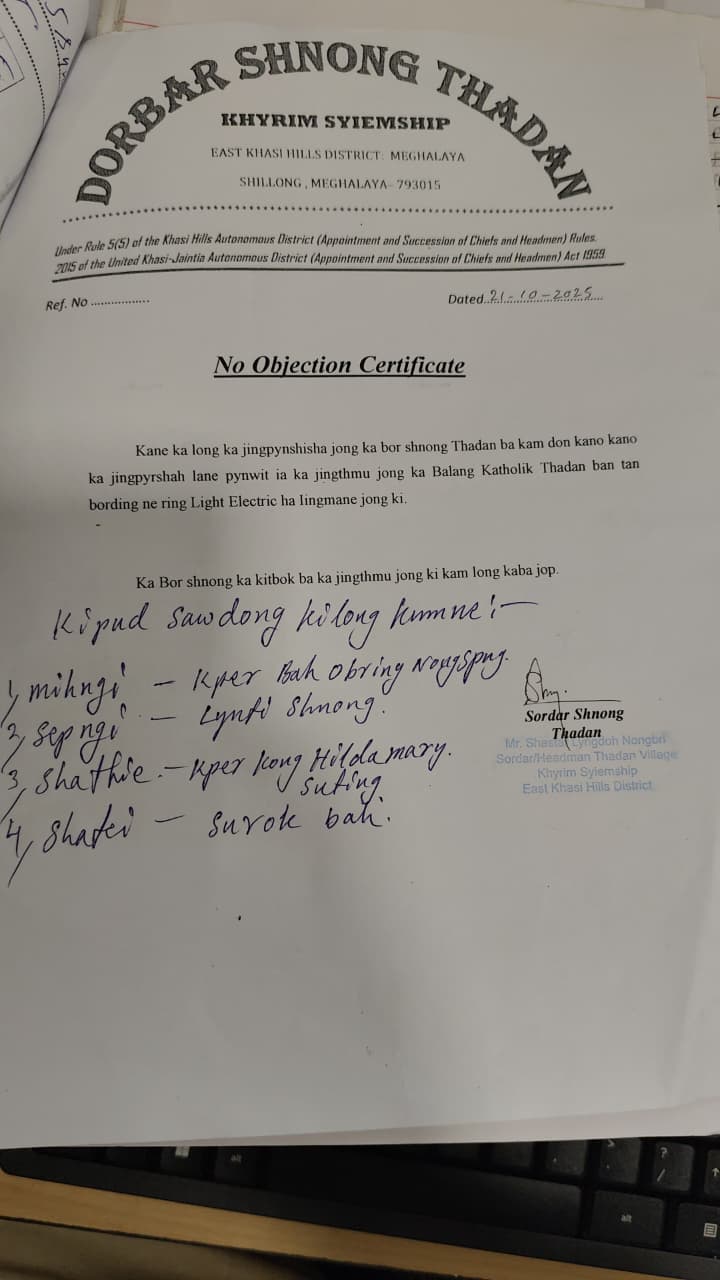 DORBAR SHNONG THADAN
KHYRIM SYIEMSHIP
EAST KHASI HILLS DISTRICT: MEGHALAYA
SHILLONG , MEGHALAYA- 793015
Under Rule 5(5) of the Khasi Hills Autonomous District (Appointment and Succession of Chiefs and Headmen) Rules.
2015 of the United Khasi-Jaintia Autonomous District (Appointment and Succession of Chiefs and Headmen) Act 1959
Ref. No ................
Dated..21-10-2025....
No Objection Certificate
Kane ka long ka jingpynshisha jong ka bor shnong Thadan ba kam don kano kano
ka jingpyrshah lane pynwit ia ka jingthmu jong ka Balang Katholik Thadan ban tan
bording ne ring Light Electric ha Iingmane jong ki.
Ka Bor shnong ka kitbok ba ka jingthmu jong ki kam long kaba jop.
Ki pud sawdong ki long kumne:-
1, mihngi - Kper Bah Obring Nongspng.
2, Sepngi - Lynti Shnong.
3, Shathie - Kper Kong Hilda mary.
Suting
4, Shatei - Surok bah.
Sordar Shnong
Thadan
Mr. Shastal Lyngdoh Nongbri
Sordar/Headman Thadan Village
Khyrim Syiemship
East Khasi Hills District